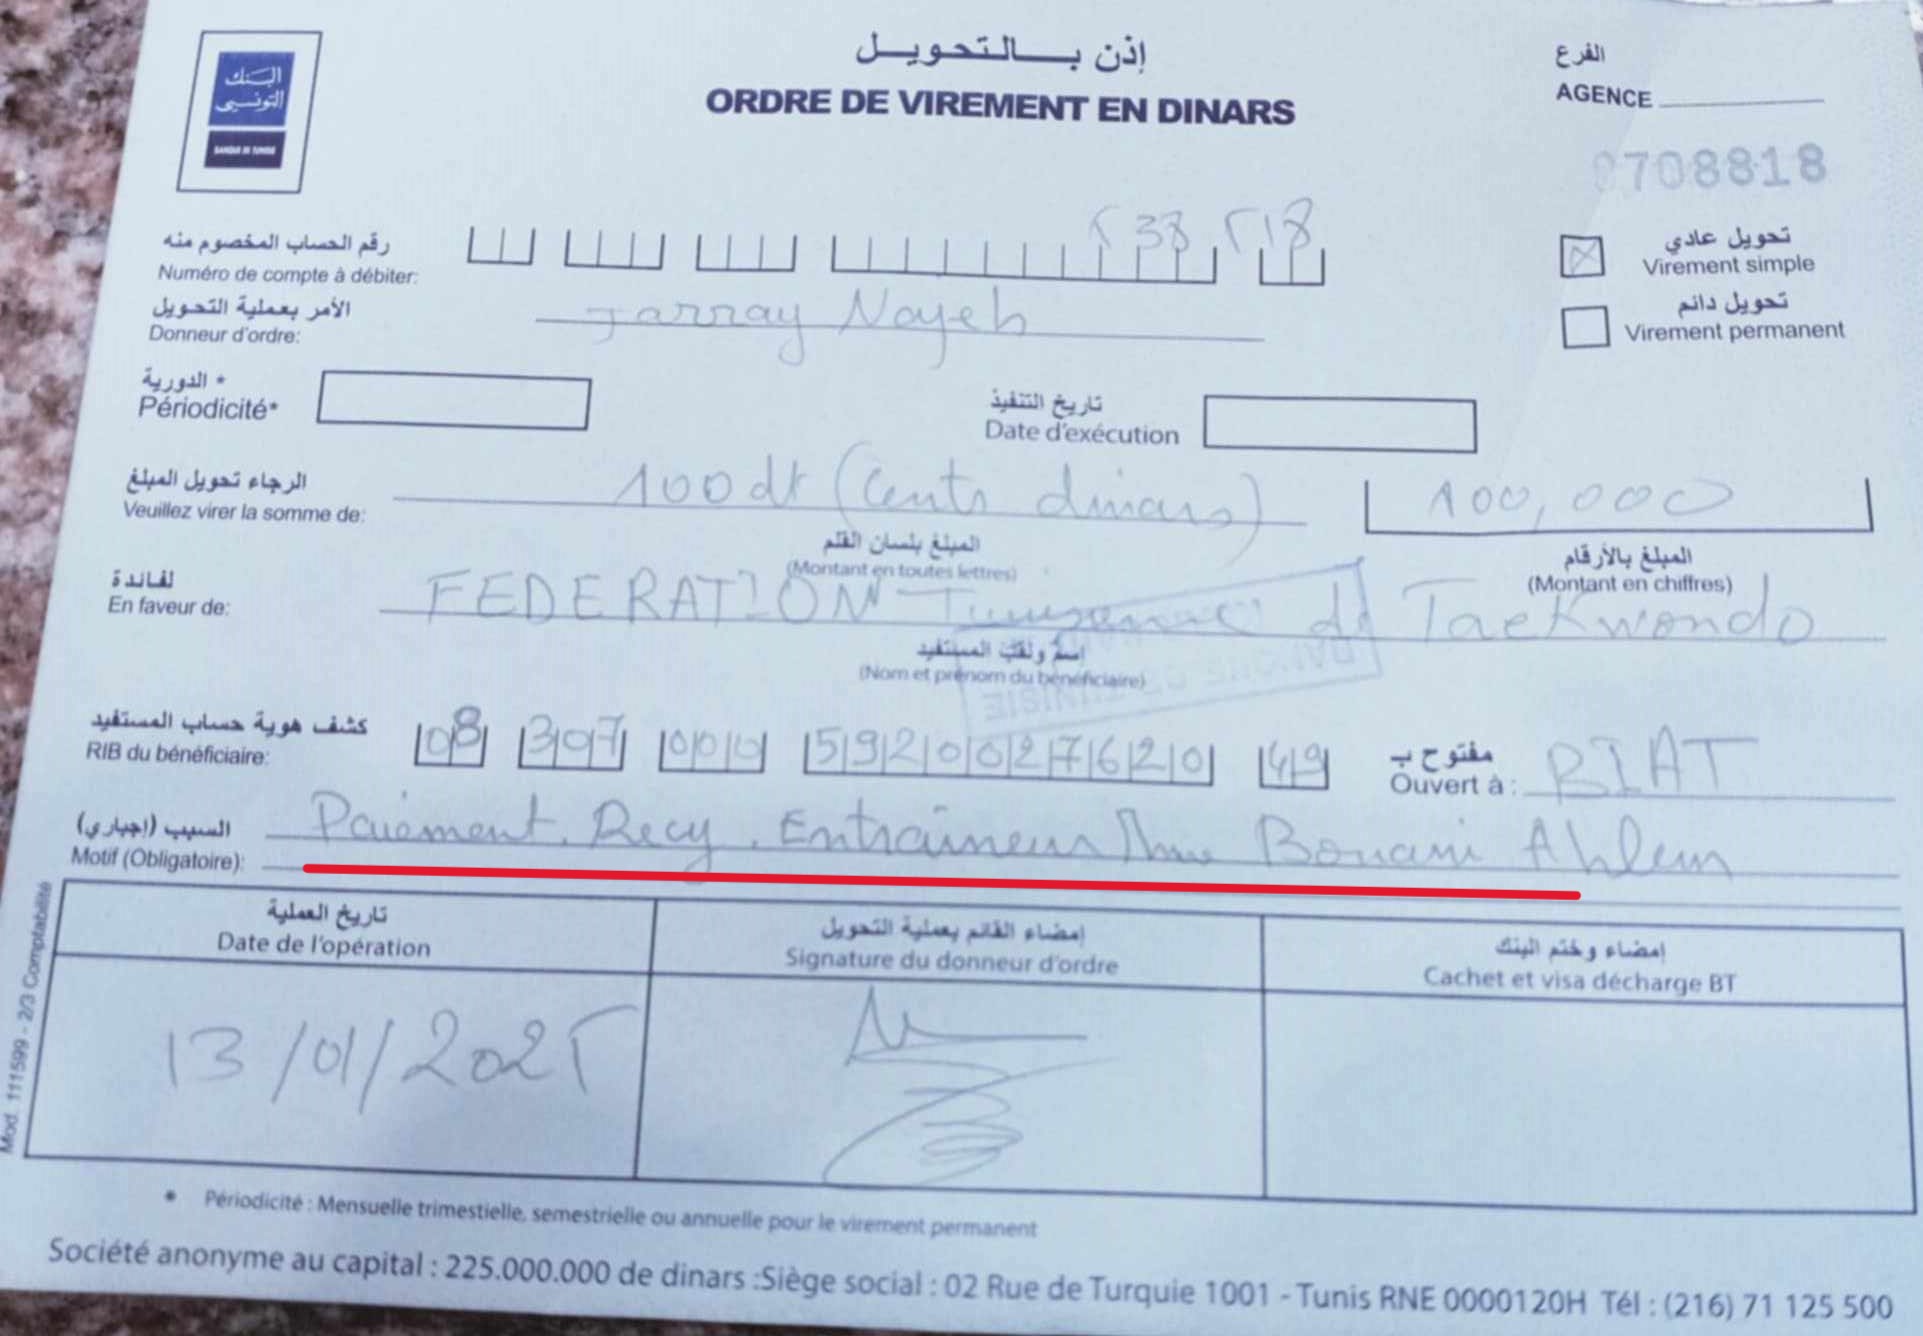 البنك
التونسي
BANQUE DE TUNISIE
إذن بـــالـتحويـــل
ORDRE DE VIREMENT EN DINARS
الفرع
AGENCE
0708818
رقم الحساب المخصوم منه
Numéro de compte à débiter:
538 518
تحويل عادي
Virement simple
تحويل دائم
Virement permanent
الأمر بعملية التحويل
Donneur d'ordre:
Jarray Nayeh
الدورية *
Périodicité*
تاريخ التنفيذ
Date d'exécution
الرجاء تحويل المبلغ
Veuillez virer la somme de:
100 dt (Cents dinars)
100,000
المبلغ بلسان القلم
(Montant en toutes lettres)
المبلغ بالأرقام
(Montant en chiffres)
لفائدة
En faveur de:
FEDERATION Tunisienne de Taekwondo
إسم ولقب المستفيد
(Nom et prénom du bénéficiaire)
BANQUE DE TUNISIE
كشف هوية حساب المستفيد
RIB du bénéficiaire:
08 307 000 5920027620 49
مفتوح بـ
Ouvert à :
BIAT
السبب (إجباري)
Motif (Obligatoire):
Paiement. Recy. Entraineur Mme Bouani Ahlem
تاريخ العملية
Date de l'opération
إمضاء القائم بعملية التحويل
Signature du donneur d'ordre
إمضاء وختم البنك
Cachet et visa décharge BT
13/01/2025
Mod. 111599 - 2/3 Comptabilité
* Périodicité : Mensuelle trimestielle, semestrielle ou annuelle pour le virement permanent
Société anonyme au capital : 225.000.000 de dinars :Siège social : 02 Rue de Turquie 1001 - Tunis RNE 0000120H Tél : (216) 71 125 500